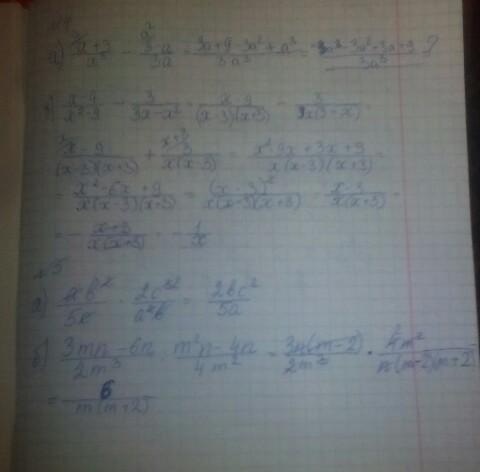 №4
а) (a+3)/a² - (3-a)/3a = (3a+9-3a²+a³)/3a³ = (a³-3a²+3a+9)/3a³ ?
(x-9)/(x²-9) - 3/(3x-x²) = (x-9)/((x-3)(x+3)) - 3/(x(3-x)) =
(x-9)/((x-3)(x+3)) + 3/(x(x-3)) = (x²-9x+3x+9)/(x(x-3)(x+3)) =
= (x²-6x+9)/(x(x-3)(x+3)) = (x-3)²/(x(x-3)(x+3)) = (x-3)/(x(x+3)) =
= - (x+3)/(x(x+3)) = - 1/x
№5
а) · = 2bc²/5a
б) (3mn-6n)/2m³ : (m²n-4n)/4m² = 3n(m-2)/2m³ · 4m²/(n(m-2)(m+2))
= 6/(m(m+2))